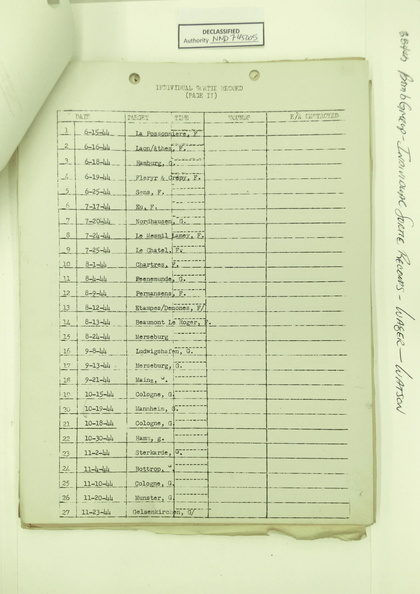 DECLASSIFIED
Authority NND 745005
INDIVIDUAL SORTIE RECORD
(PAGE II)
DATE TARGET TIME BOMBS E/A DESTROYED
1 6-15-44 La Possonniere, F
2 6-16-44 Laon/Athes, F.
3 6-18-44 Hamburg, G.
4 6-19-44 Fleryr & Crepy, F.
5 6-25-44 Sens, F.
6 7-17-44 Eu, F.
7 7-20-44 Nordhausen, G.
8 7-24-44 Le Mesnil Lamer, F.
9 7-25-44 Le Chatel, F.
10 8-1-44 Chartres, F.
11 8-4-44 Peenemunde, G.
12 8-9-44 Permansens, F.
13 8-12-44 Etampes/Demones, F/
14 8-13-44 Beaumont Le Roger, F.
15 8-24-44 Merseburg
16 9-8-44 Ludwigshafen, G.
17 9-13-44 Merseburg, G.
18 9-21-44 Mainz,
19 10-15-44 Cologne, G.
20 10-19-44 Mannheim, G.
21 10-18-44 Cologne, G.
22 10-30-44 Hamm, g.
23 11-2-44 Sterkarde, G.
24 11-4-44 Bottrop,
25 11-10-44 Cologne, G.
26 11-20-44 Munster, G.
27 11-23-44 Gelsenkirchen, G/
Bomb Group - Individual Sortie Records - WAGER - WATSON